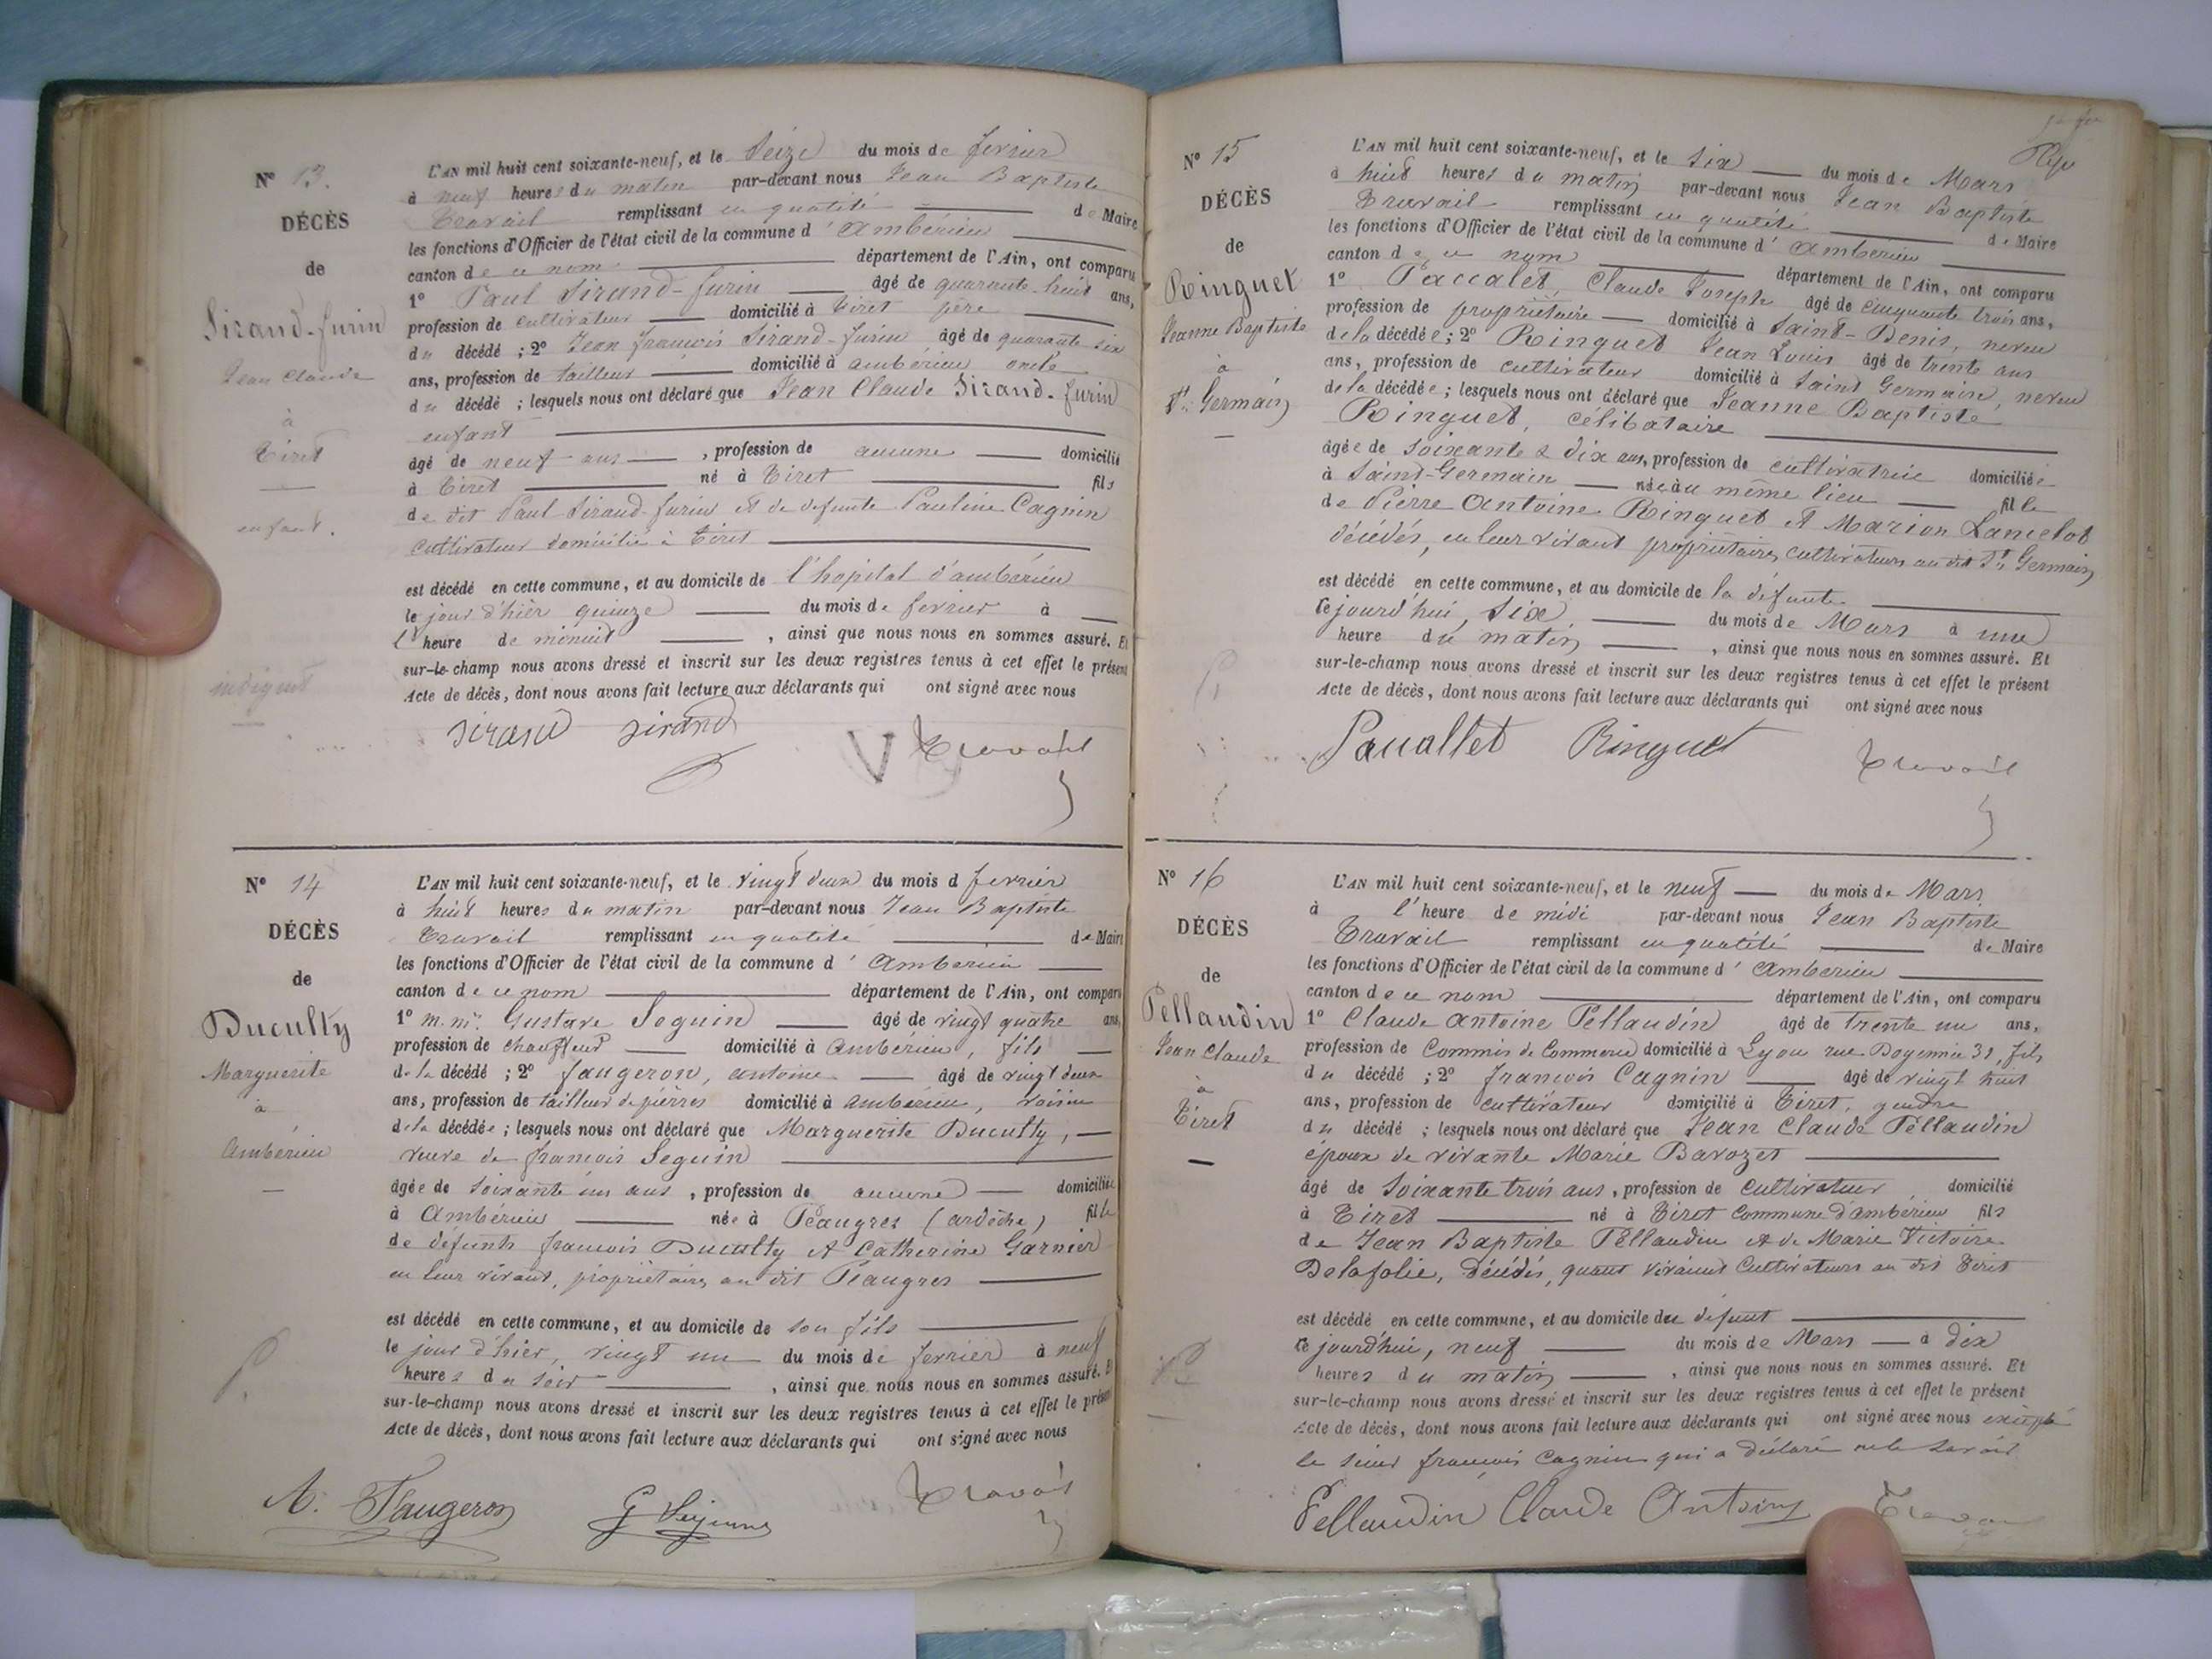 N° 13.
DÉCÈS
de
Sirand-furin
Jean Claude
à
Tiret
enfant.
indigent
L'AN mil huit cent soixante-neuf, et le Seize du mois de fevrier
à neuf heures du matin par-devant nous Jean Baptiste
Travail remplissant en qualité de Maire
les fonctions d'Officier de l'état civil de la commune d'Ambérieu
canton de ce nom département de l'Ain, ont comparu
1° Paul Sirand-furin âgé de quarante-huit ans,
profession de cultivateur domicilié à Tiret père
du décédé ; 2° Jean françois Sirand-furin âgé de quarante six
ans, profession de tailleur domicilié à ambérieu oncle
du décédé ; lesquels nous ont déclaré que Jean Claude Sirand-furin
enfant
âgé de neuf ans , profession de aucune domicilié
à Tiret né à Tiret fils
de dit Paul Sirand-furin et de defunte Pauline Cagnin
cultivateur domicilié à Tiret
est décédé en cette commune, et au domicile de l'hopital d'ambérieu
le jour d'hier quinze du mois de fevrier à
l'heure de minuit , ainsi que nous nous en sommes assuré. Et
sur-le-champ nous avons dressé et inscrit sur les deux registres tenus à cet effet le présent
Acte de décès, dont nous avons fait lecture aux déclarants qui ont signé avec nous
Sirand Sirand Travail
N° 14
DÉCÈS
de
Ducully
Marguerite
à
Ambérieu
P.
L'AN mil huit cent soixante-neuf, et le vingt deux du mois d fevrier
à huit heures du matin par-devant nous Jean Baptiste
Travail remplissant en qualité de Maire
les fonctions d'Officier de l'état civil de la commune d'Amberieu
canton de ce nom département de l'Ain, ont comparu
1° m. mr. Gustave Seguin âgé de vingt quatre ans,
profession de chauffeur domicilié à amberieu, fils
de la décédé ; 2° faugeron, antoine âgé de vingt deux
ans, profession de tailleur de pierres domicilié à ambérieu, voisin
de la décédée ; lesquels nous ont déclaré que Marguerite Ducully,
veuve de françois Seguin
âgée de soixante un ans , profession de aucune domiciliée
à Ambérieu née à Péaugres (ardèche) fille
de défunts françois Ducully et Catherine Garnier
en leur vivant, propriétaires au dit Péaugres
est décédé en cette commune, et au domicile de son fils
le jour d'hier, vingt un du mois de fevrier à neuf
heures du soir , ainsi que nous nous en sommes assuré. E
sur-le-champ nous avons dressé et inscrit sur les deux registres tenus à cet effet le présen
Acte de décès, dont nous avons fait lecture aux déclarants qui ont signé avec nous
A. Faugeron G Seguin Travail
N° 15
DÉCÈS
de
Ringuet
Jeanne Baptiste
à
St. Germain
L'AN mil huit cent soixante-neuf, et le six du mois de Mars
à huit heures du matin par-devant nous Jean Baptiste
Travail remplissant en qualité de Maire
les fonctions d'Officier de l'état civil de la commune d'Ambérieu
canton de ce nom département de l'Ain, ont comparu
1° Paccalet, Claude Joseph âgé de cinquante trois ans,
profession de propriétaire domicilié à Saint-Denis, neveu
de la décédée ; 2° Ringuet Jean Louis âgé de trente ans
ans, profession de cultivateur domicilié à Saint Germain, neveu
de la décédée ; lesquels nous ont déclaré que Jeanne Baptiste
Ringuet, célibataire
âgée de soixante & dix ans, profession de cultivatrice domiciliée
à Saint-Germain née au même lieu fille
de Pierre Antoine Ringuet et Marion Lancelot
décédés, en leur vivant propriétaires cultivateurs au dit St Germain
est décédé en cette commune, et au domicile de la défunte
ce jourd'hui, six du mois de Mars à une
heure du matin , ainsi que nous nous en sommes assuré. Et
sur-le-champ nous avons dressé et inscrit sur les deux registres tenus à cet effet le présent
Acte de décès, dont nous avons fait lecture aux déclarants qui ont signé avec nous
Pacallet Ringuet Travail
N° 16
DÉCÈS
de
Pellaudin
Jean Claude
à
Tiret
L'AN mil huit cent soixante-neuf, et le neuf du mois de Mars
à l'heure de midi par-devant nous Jean Baptiste
Travail remplissant en qualité de Maire
les fonctions d'Officier de l'état civil de la commune d'Amberieu
canton de ce nom département de l'Ain, ont comparu
1° Claude Antoine Pellaudin âgé de trente un ans,
profession de Commis de Commerce domicilié à Lyon rue 31, fils
du décédé ; 2° françois Cagnin âgé de vingt huit
ans, profession de cultivateur domicilié à Tiret, gendre
du décédé ; lesquels nous ont déclaré que Jean Claude Pellaudin
époux de vivante Marie Barozet
âgé de Soixante trois ans, profession de Cultivateur domicilié
à Tiret né à Tiret Commune d'ambérieu fils
de Jean Baptiste Pellaudin et de Marie Victoire
Delafolie, Décédés, quant vivaient Cultivateurs au dit Tiret
est décédé en cette commune, et au domicile du defunt
ce jourd'hui, neuf du mois de Mars à dix
heures du matin , ainsi que nous nous en sommes assuré. Et
sur-le-champ nous avons dressé et inscrit sur les deux registres tenus à cet effet le présent
Acte de décès, dont nous avons fait lecture aux déclarants qui ont signé avec nous excepté
le sieur françois Cagnin qui a déclaré ne le savoir
Pellaudin Claude Antoine